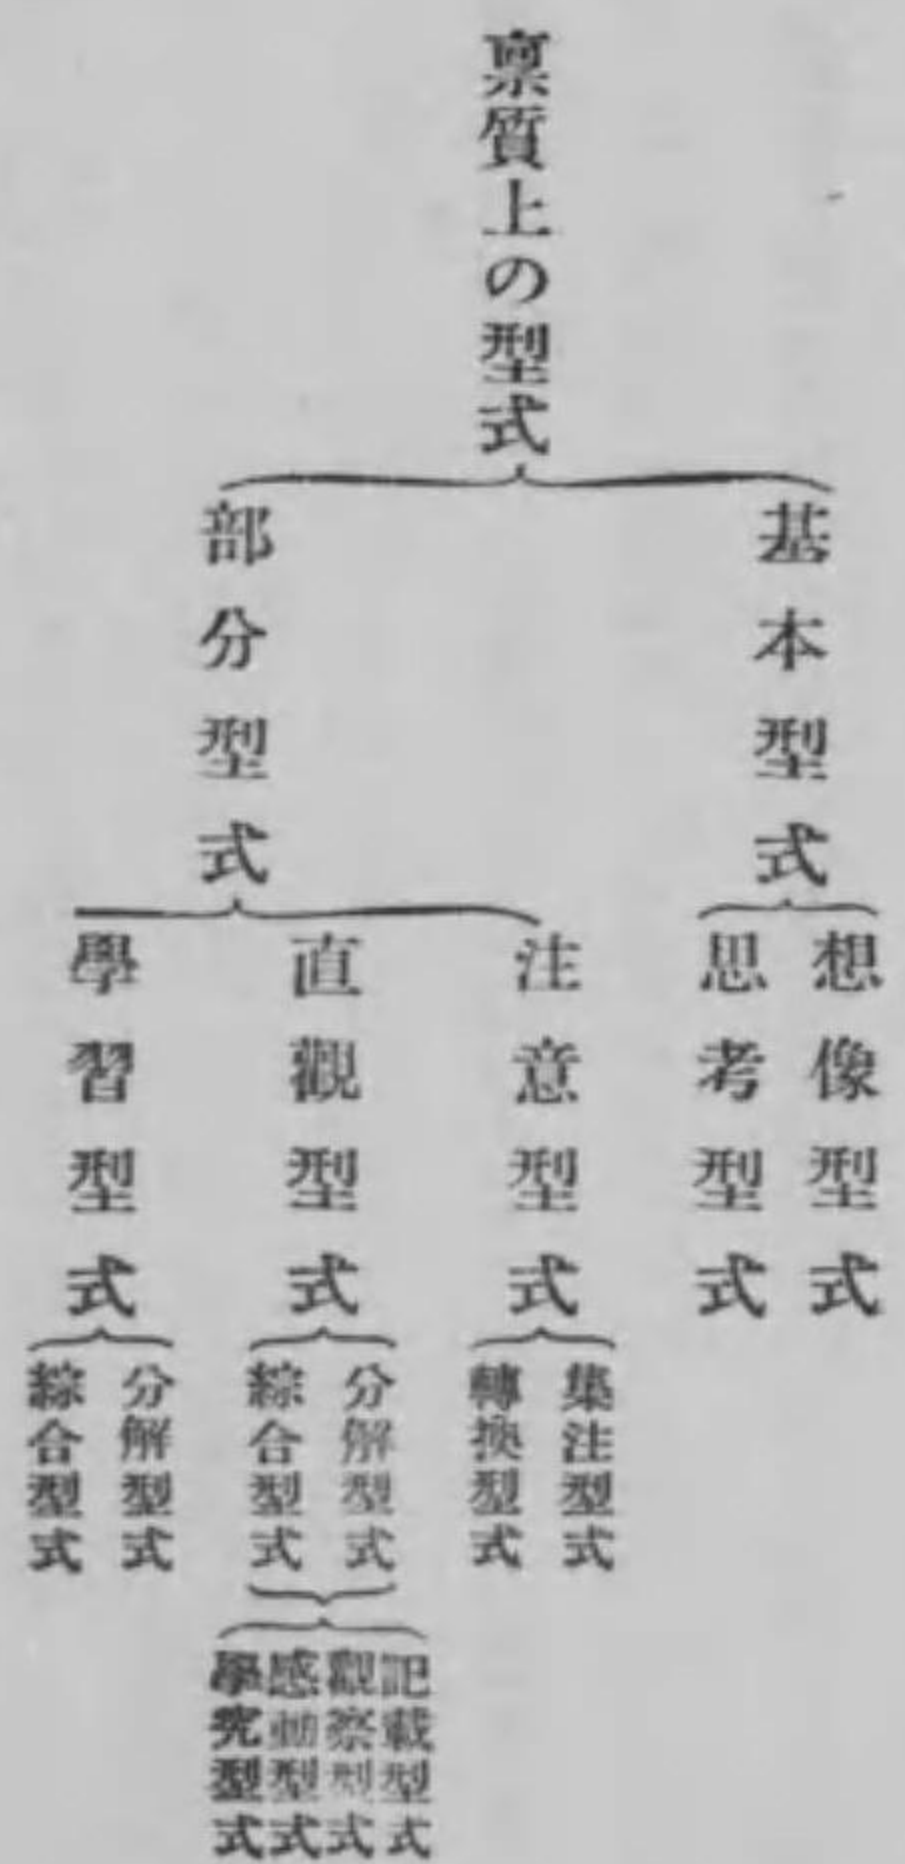 稟質上の型式
基本型式
想像型式
思考型式
部分型式
注意型式
集注型式
轉換型式
直觀型式
分解型式
綜合型式
記載型式
觀察型式
感動型式
學究型式
學習型式
分解型式
綜合型式